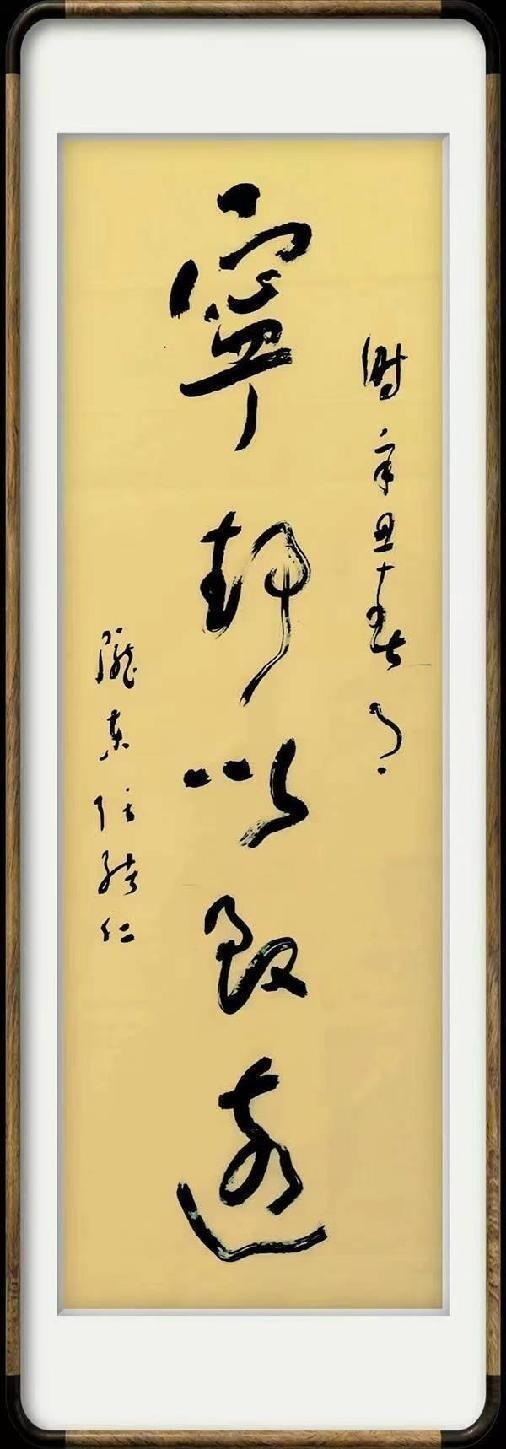 時辛丑春月
寧静以致遠
隴東仁